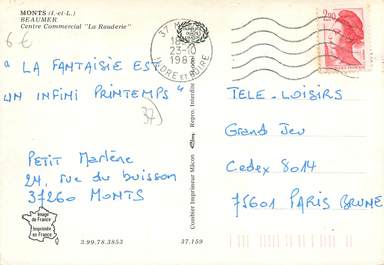 MONTS (I.-et-L.)
BEAUMER
Centre Commercial "La Rauderie"
6€
37 MONTS
23-10
INDRE ET LOIRE
2,20
" LA FANTAISIE EST
UN INFINI PRINTEMPS "
37
Petit Marlène
24, rue du buisson
37260 MONTS
Image
de France
Imprimée
en France
3.99.78.3853
37.159
Combier Imprimeur Mâcon
Repro. Interdite
TELE-LOISIRS
Grand Jeu
Cedex 8014
75601 PARIS BRUNE